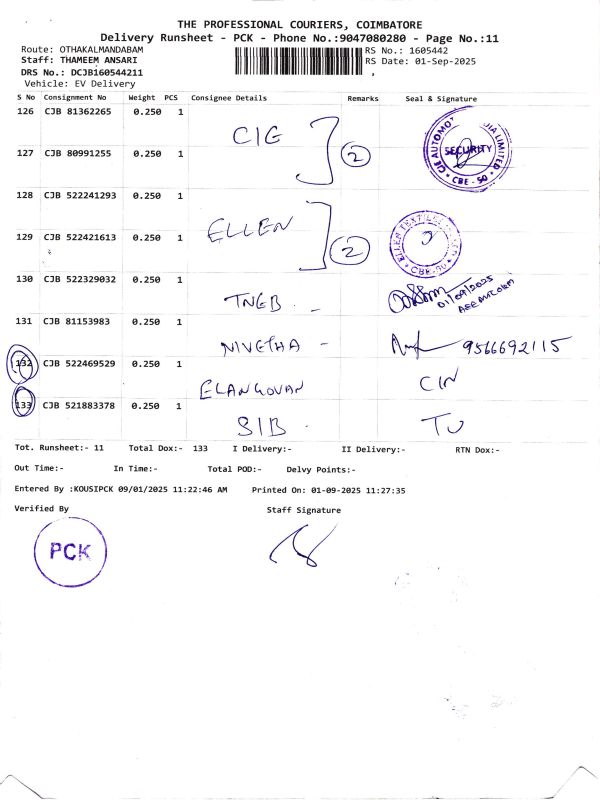 THE PROFESSIONAL COURIERS, COIMBATORE
Delivery Runsheet - PCK - Phone No.:9047080280 - Page No.:11
Route: OTHAKALMANDABAM RS No.: 1605442
Staff: THAMEEM ANSARI RS Date: 01-Sep-2025
DRS No.: DCJB160544211
Vehicle: EV Delivery
S No Consignment No Weight PCS Consignee Details Remarks Seal & Signature
126 CJB 81362265 0.250 1
CIE 2 SECURITY CBE - 50
127 CJB 80991255 0.250 1
128 CJB 522241293 0.250 1
ELLEN 2
129 CJB 522421613 0.250 1
130 CJB 522329032 0.250 1
TNEB - 01/09/2025
131 CJB 81153983 0.250 1
NIVETHA - 9566692115
132 CJB 522469529 0.250 1
ELANGOVAN CIN
133 CJB 521883378 0.250 1
SIB
Tot. Runsheet:- 11 Total Dox:- 133 I Delivery:- II Delivery:- RTN Dox:-
Out Time:- In Time:- Total POD:- Delvy Points:-
Entered By :KOUSIPCK 09/01/2025 11:22:46 AM Printed On: 01-09-2025 11:27:35
Verified By Staff Signature
PCK